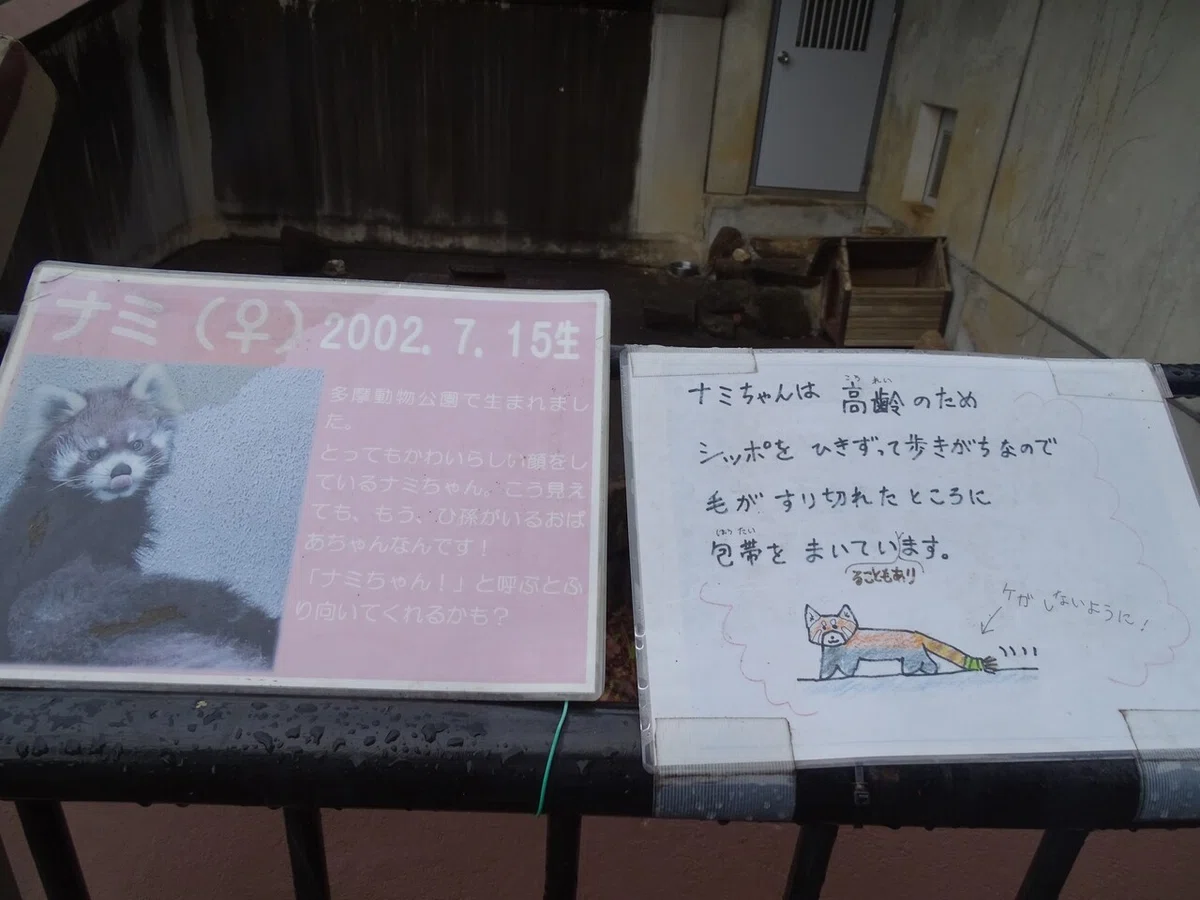 ナミ（♀）2002. 7. 15生
多摩動物公園で生まれまし
た。
とってもかわいらしい顔をし
ているナミちゃん。こう見え
ても、もう、ひ孫がいるおば
あちゃんなんです！
「ナミちゃん！」と呼ぶとふ
り向いてくれるかも？
こう れい
ナミちゃんは 高齢のため
シッポを ひきずって歩きがちなので
毛が すり切れたところに
ほう たい
包帯を まいています。
ることもあり
ケガ しないように！